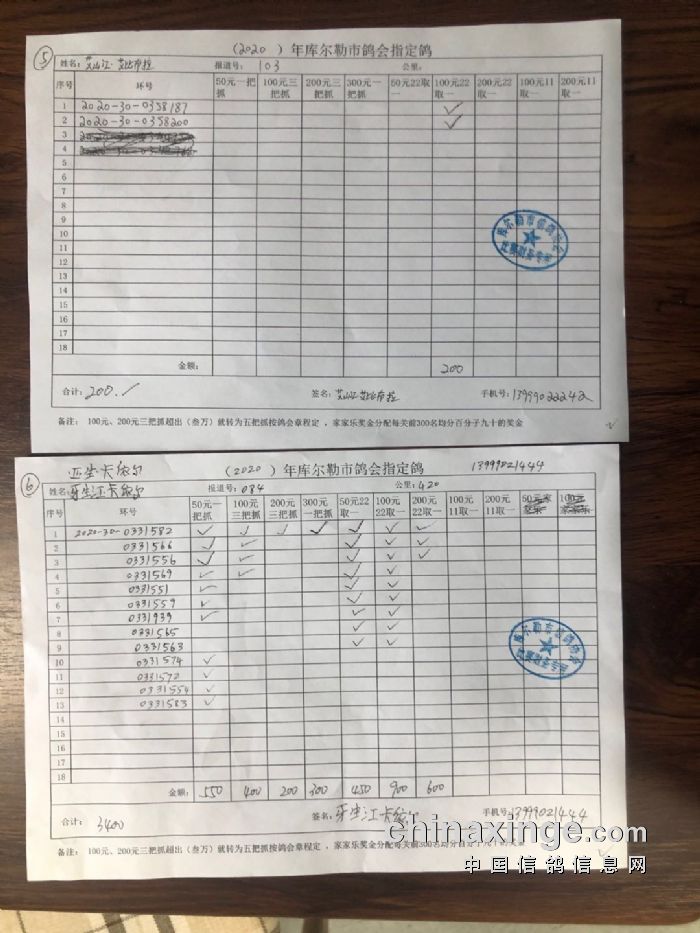 5
（2020）年库尔勒市鸽会指定鸽
姓名：艾山江·艾比布拉 报道号：103 公里：
序号 环号 50元一把抓 100元三把抓 200元三把抓 300元一把抓 50元22取一 100元22取一 200元22取一 100元11取一 200元11取一
1 2020-30-0358187 ✓
2 2020-30-0358200 ✓
3
4
5
6
7
8
9
10
11
12
13
14
15
16
17
18
金额： 200
合计：200. 签名：艾山江·艾比布拉 手机号：13999022242
备注： 100元、200元三把抓超出（叁万）就转为五把抓按鸽会章程定，家家乐奖金分配每关前300名均分百分子九十的奖金
库尔勒市信鸽协会
6
亚生卡依尔 （2020）年库尔勒市鸽会指定鸽 13999021444
姓名：牙生江卡依尔 报道号：084 公里：420
序号 环号 50元一把抓 100元三把抓 200元三把抓 300元一把抓 50元22取一 100元22取一 200元22取一 100元11取一 200元11取一 50元家 100元
1 2020-30-0331582 ✓ ✓ ✓ ✓ ✓ ✓ ✓
2 0331566 ✓ ✓ ✓ ✓ ✓
3 0331556 ✓ ✓ ✓ ✓ ✓
4 0331569 ✓ ✓ ✓ ✓
5 0331551 ✓ ✓ ✓
6 0331559 ✓ ✓ ✓
7 0331939 ✓ ✓ ✓
8 0331565 ✓ ✓
9 0331563 ✓ ✓
10 0331574 ✓
11 0331572 ✓
12 0331554 ✓
13 0331583 ✓
14
15
16
17
18
金额： 550 400 200 300 450 900 600
合计： 3400 签名：牙生江卡依尔 手机号：13999021444
备注： 100元、200元三把抓超出（叁万）就转为五把抓按鸽会章程定，家家乐奖金分配每关前300名均分百分子九十的奖金
库尔勒市信鸽协会
chinaxinge.com
中国信鸽信息网